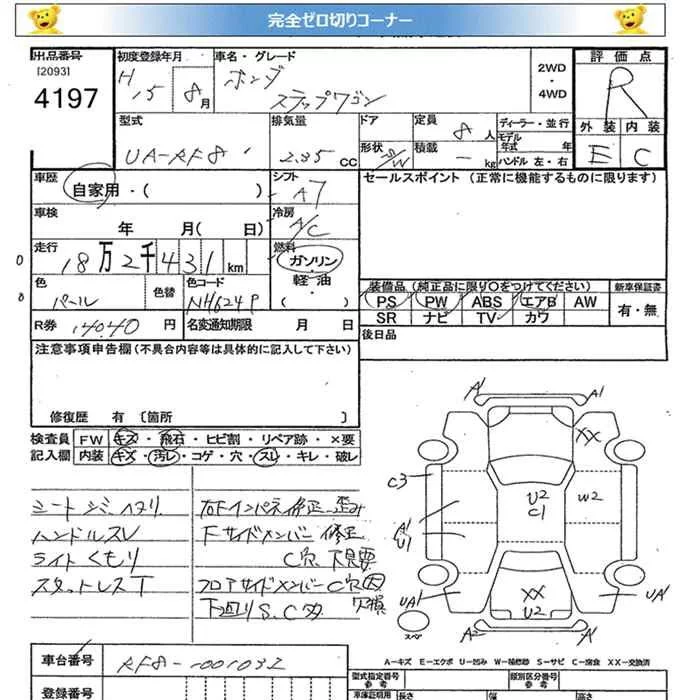 完全ゼロ切りコーナー
出品番号
[2093]
4197
初度登録年月
H 15 8月
車名・グレード
ホンダ
ステップワゴン
2WD
・
4WD
評価点
R
外装 内装
E C
型式
UA-RF8
排気量
2.35 CC
ドア
形状
5/W
定員
8人
積載
- kg
ディーラー・並行
モデル
年式 年
ハンドル 左・右
車歴
自家用・( )
シフト
A7
セールスポイント (正常に機能するものに限ります)
車検
年 月( 日)
冷房
A/C
走行
18万2千431km
燃料
ガソリン
・
軽油
・
( )
色
パール
色替
色コード
NH624P
装備品(純正品に限り○をつけてください)
PS PW ABS エアB AW
SR ナビ TV カワ
新車保証書
有・無
R券 14040円
名変通知期限 月 日
後日品
注意事項申告欄(不具合内容等は具体的に記入して下さい)
修復歴 有〔箇所 〕
検査員
記入欄
FW キズ・飛石・ヒビ割・リペア跡・×要
内装 キズ・汚レ・コゲ・穴・スレ・キレ・破レ
シートシミ、ヘタリ
ハンドルスレ
ライトくもり
スタットレスT
右Fインパネ修正、歪み
Fサイドメンバー修正
C穴、下見要
フロアサイドメンバーC穴
欠損
下廻りS、C大
A1
A1
XX
C3
U2
C1
W2
A1
U1
XX
U2
UA1
UA1
A2
A1
スペア
A-キズ E-エクボ U-凹み W-補修跡 S-サビ C-腐食 XX-交換済
車台番号
RF8-1001032
登録番号
型式指定番号
参考
類別区分番号
参考
車庫証明用
長さ
幅
高さ